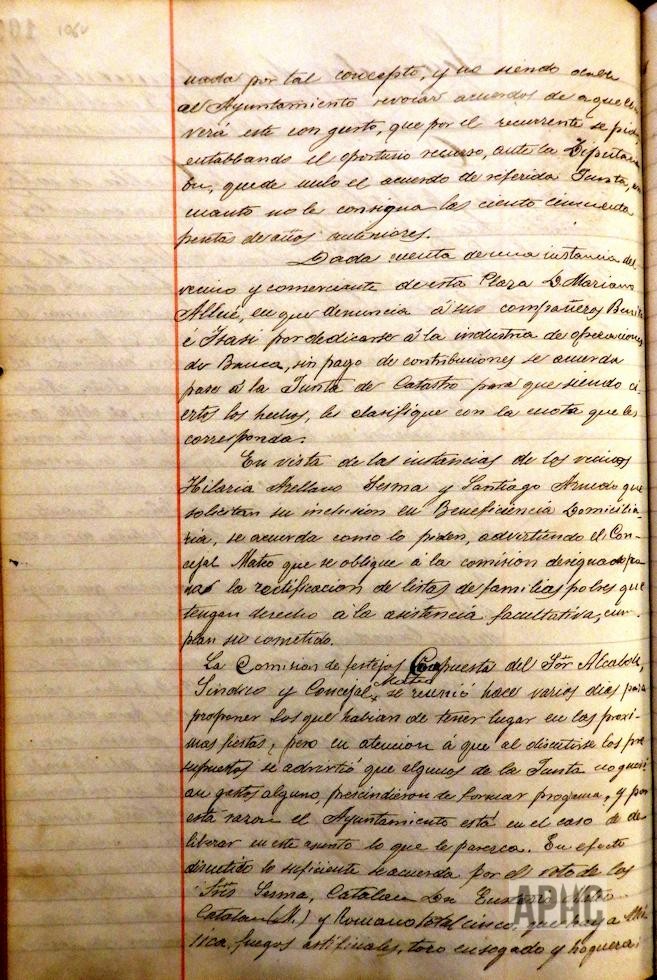 nada por tal concepto, y no siendo
al Ayuntamiento revocar acuerdos de aquella
verá este con gusto, que por el recurrente se pida,
entablando el oportuno recurso, ante la Diputacion
quede nulo el acuerdo de referida Junta, en
cuanto no le consigna las ciento cincuenta
pesetas de años anteriores.
Dada cuenta de una instancia del
vecino y comerciante de esta Plaza D. Mariano
Allué, en que denuncia á sus compañeros Benito
é Isasi por dedicarse á la industria de operaciones
de Banca, sin pago de contribuciones se acuerda
pase á la Junta de Catastro para que siendo ci-
ertos los hechos, les clasifique con la cuota que les
corresponda.
En vista de las instancias de los vecinos
Hilaria Arellano Sesma y Santiago Arnedo que
solicitan su inclusion en Beneficiencia Domicilia-
ria, se acuerda como lo piden, advirtiendo el Con-
cejal Mateo que se oblique á la comision designada pa-
ra la rectificacion de listas de familias pobres que
tengan derecho á la asistencia facultativa, cum-
plan su cometido.
La Comision de festejos Compuesta del Sor Alcalde,
Sindico y Concejal Mateo se reunió hace varios dias para
proponer los que habian de tener lugar en las proxi-
mas fiestas, pero en atencion á que al discutirse los pre
supuestos se advirtió que algunos de la Junta no queri-
an gastos alguno, prescindieron de formar programa, y por
esta razon el Ayuntamiento está en el caso de de-
liberar en este asunto lo que le parezca. En efecto
discutido lo suficiente se acuerda por el voto de los
Sres Sesma, Catalan Dn Eustasio, Mateo
Catalan (M.) y Romano total cinco, que haya Mú-
sica, fuegos artificiales, toro ensogado y hogueras
APHC